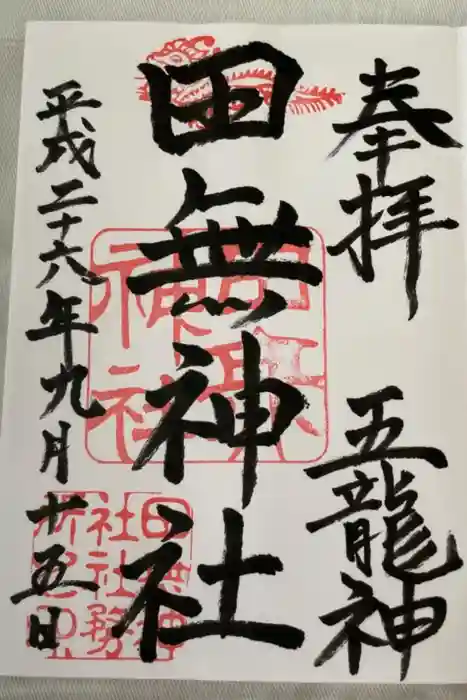 奉拝 五龍神
田無神社
平成二十六年九月十五日
田無神社